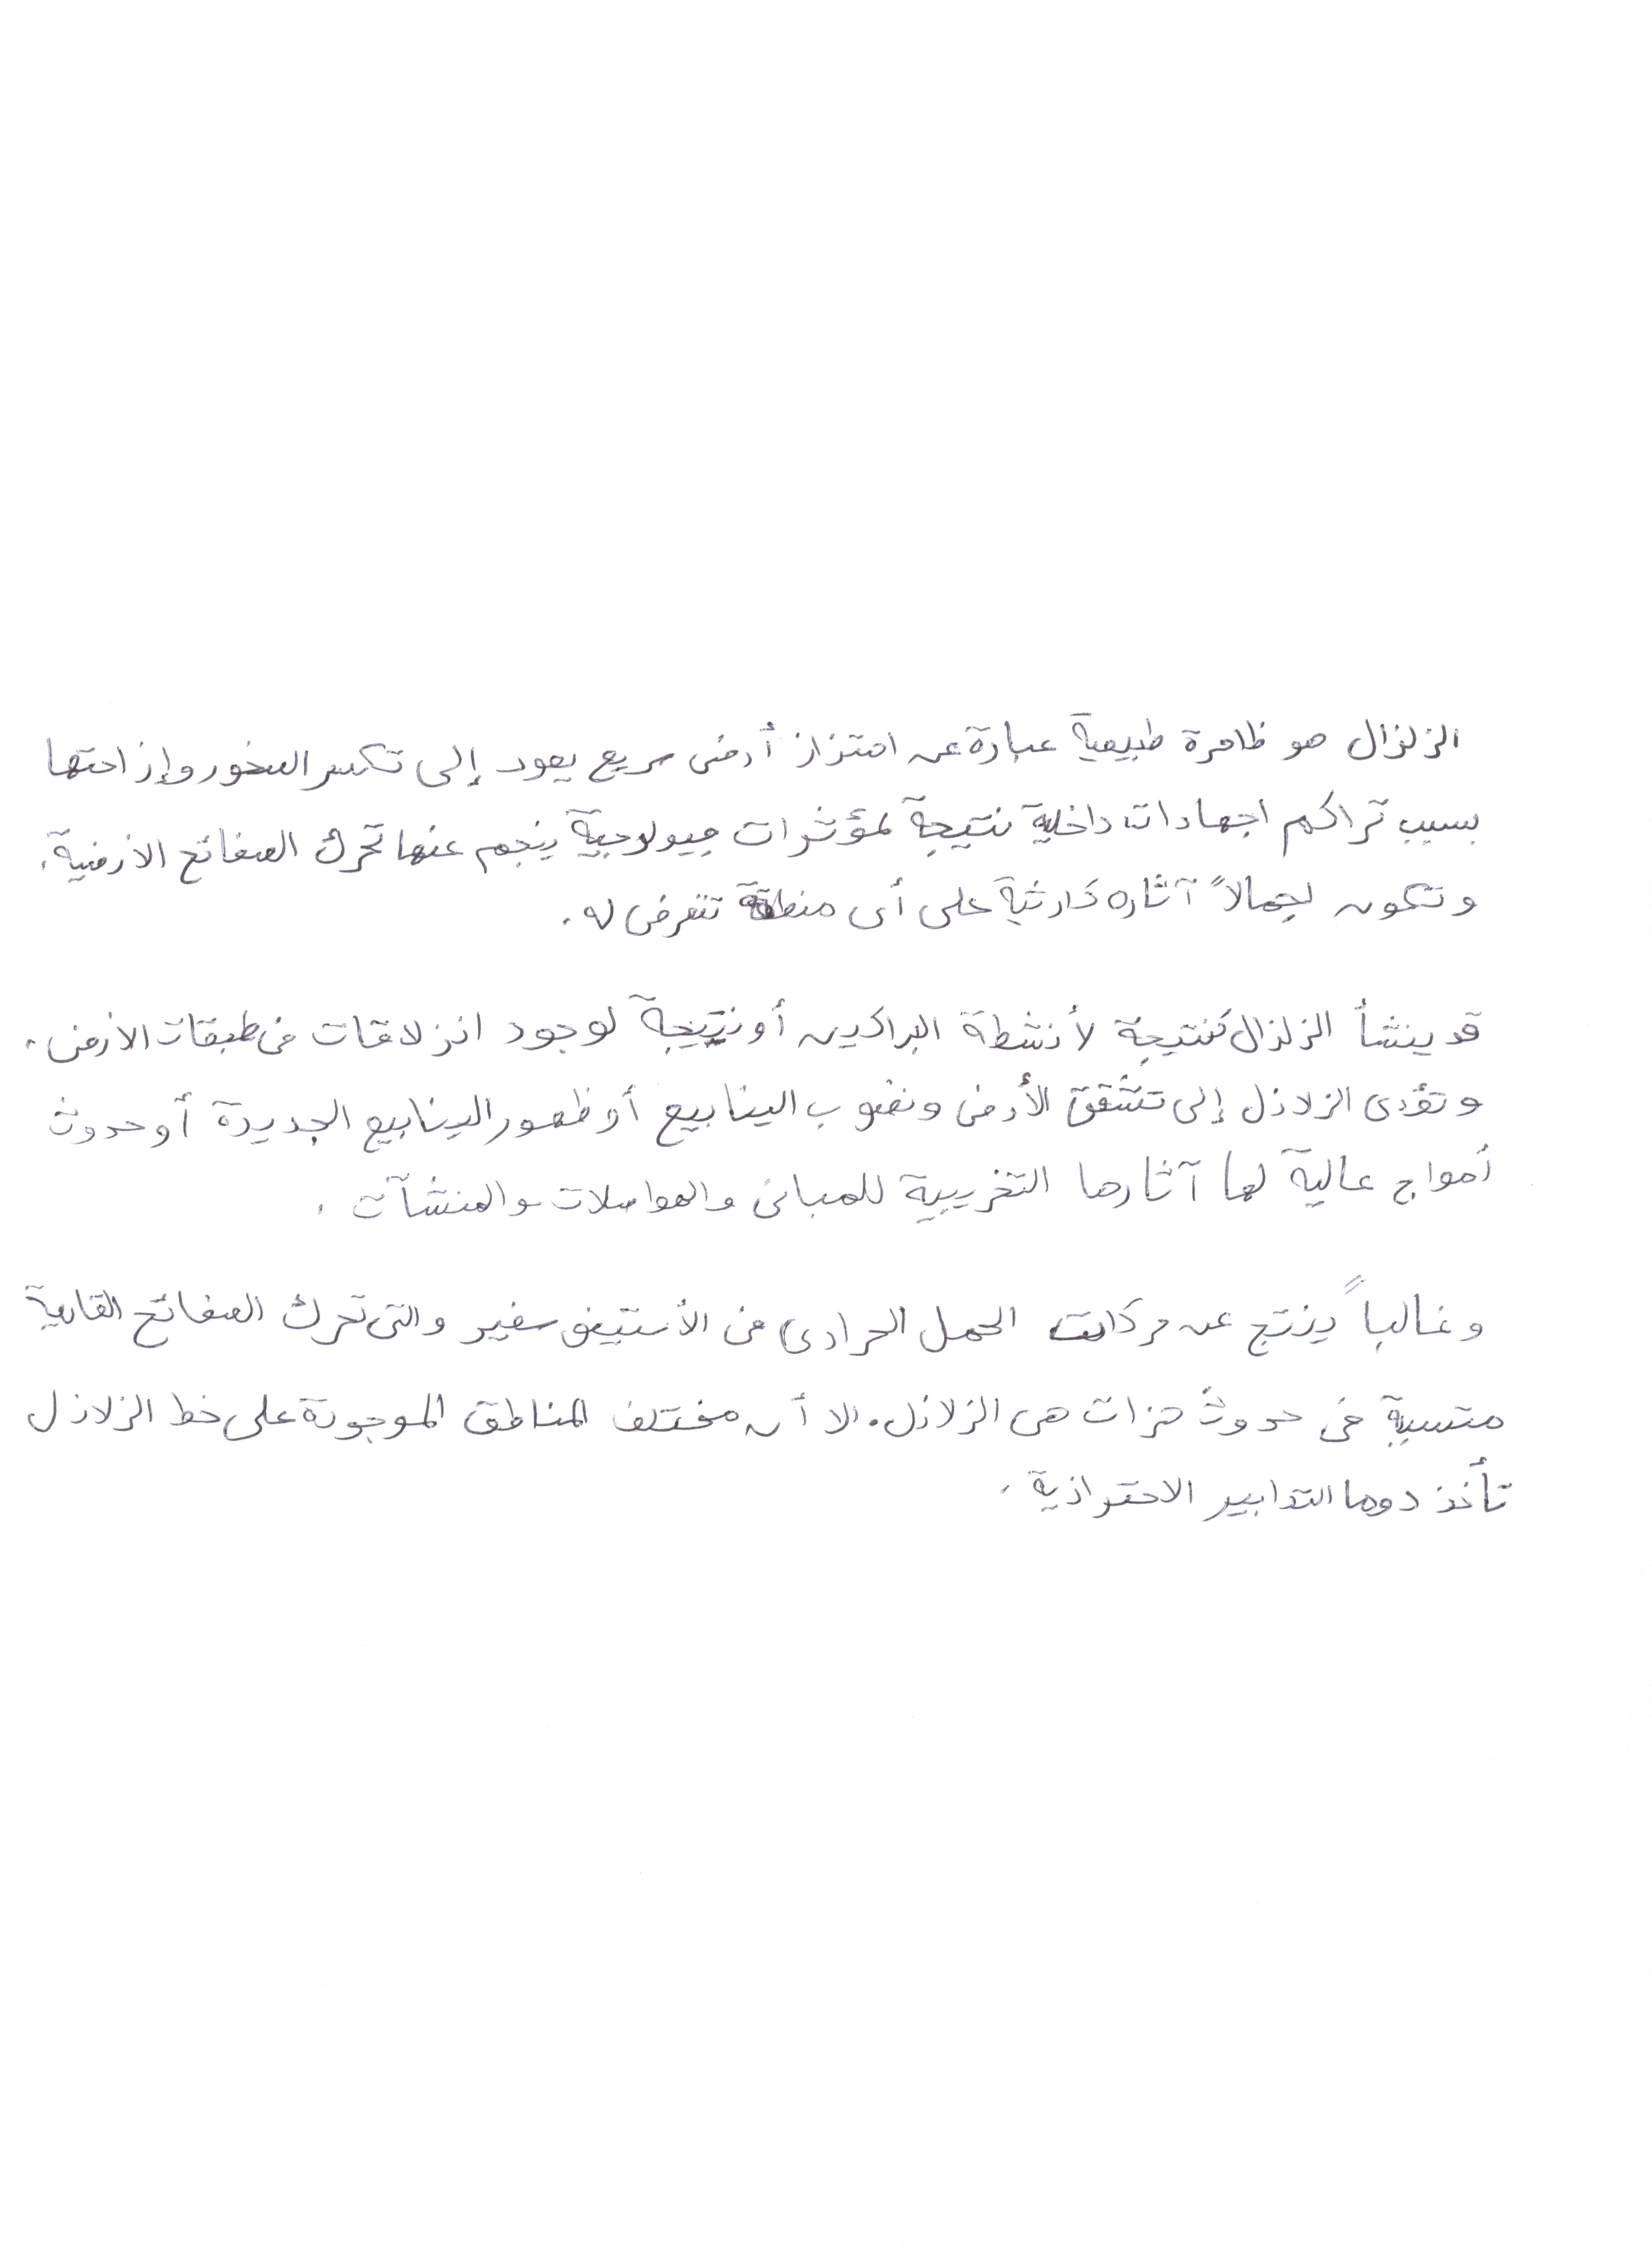 الزلزال هو ظاهرة طبيعية عبارة عن اهتزاز أرضى سريع يعود إلى تكسر الصخور وإزاحتها
بسبب تراكم اجهادات داخلية نتيجة لمؤثرات جيولوجية ينجم عنها تحرك الصفائح الارضية.
وتكون إجمالاً آثاره كارثية على أى منطقة تتعرض له.
قد ينشأ الزلزال كنتيجة لأنشطة البراكين أو نتيجة لوجود انزلاقات فى طبقات الأرض.
وتؤدى الزلازل إلى تشقق الأرض ونضوب الينابيع أو ظهور الينابيع الجديدة أو حدوث
أمواج عالية لها آثارها التخريبية للمبانى والمواصلات والمنشآت.
وغالباً ينتج عن حركات الحمل الحرارى فى الأستينوسفير والتى تحرك الصفائح القارية
متسببة فى حدوث هزات هى الزلازل. الا أن مختلف المناطق الموجودة على خط الزلازل
تأخذ دوما التدابير الاحترازية.